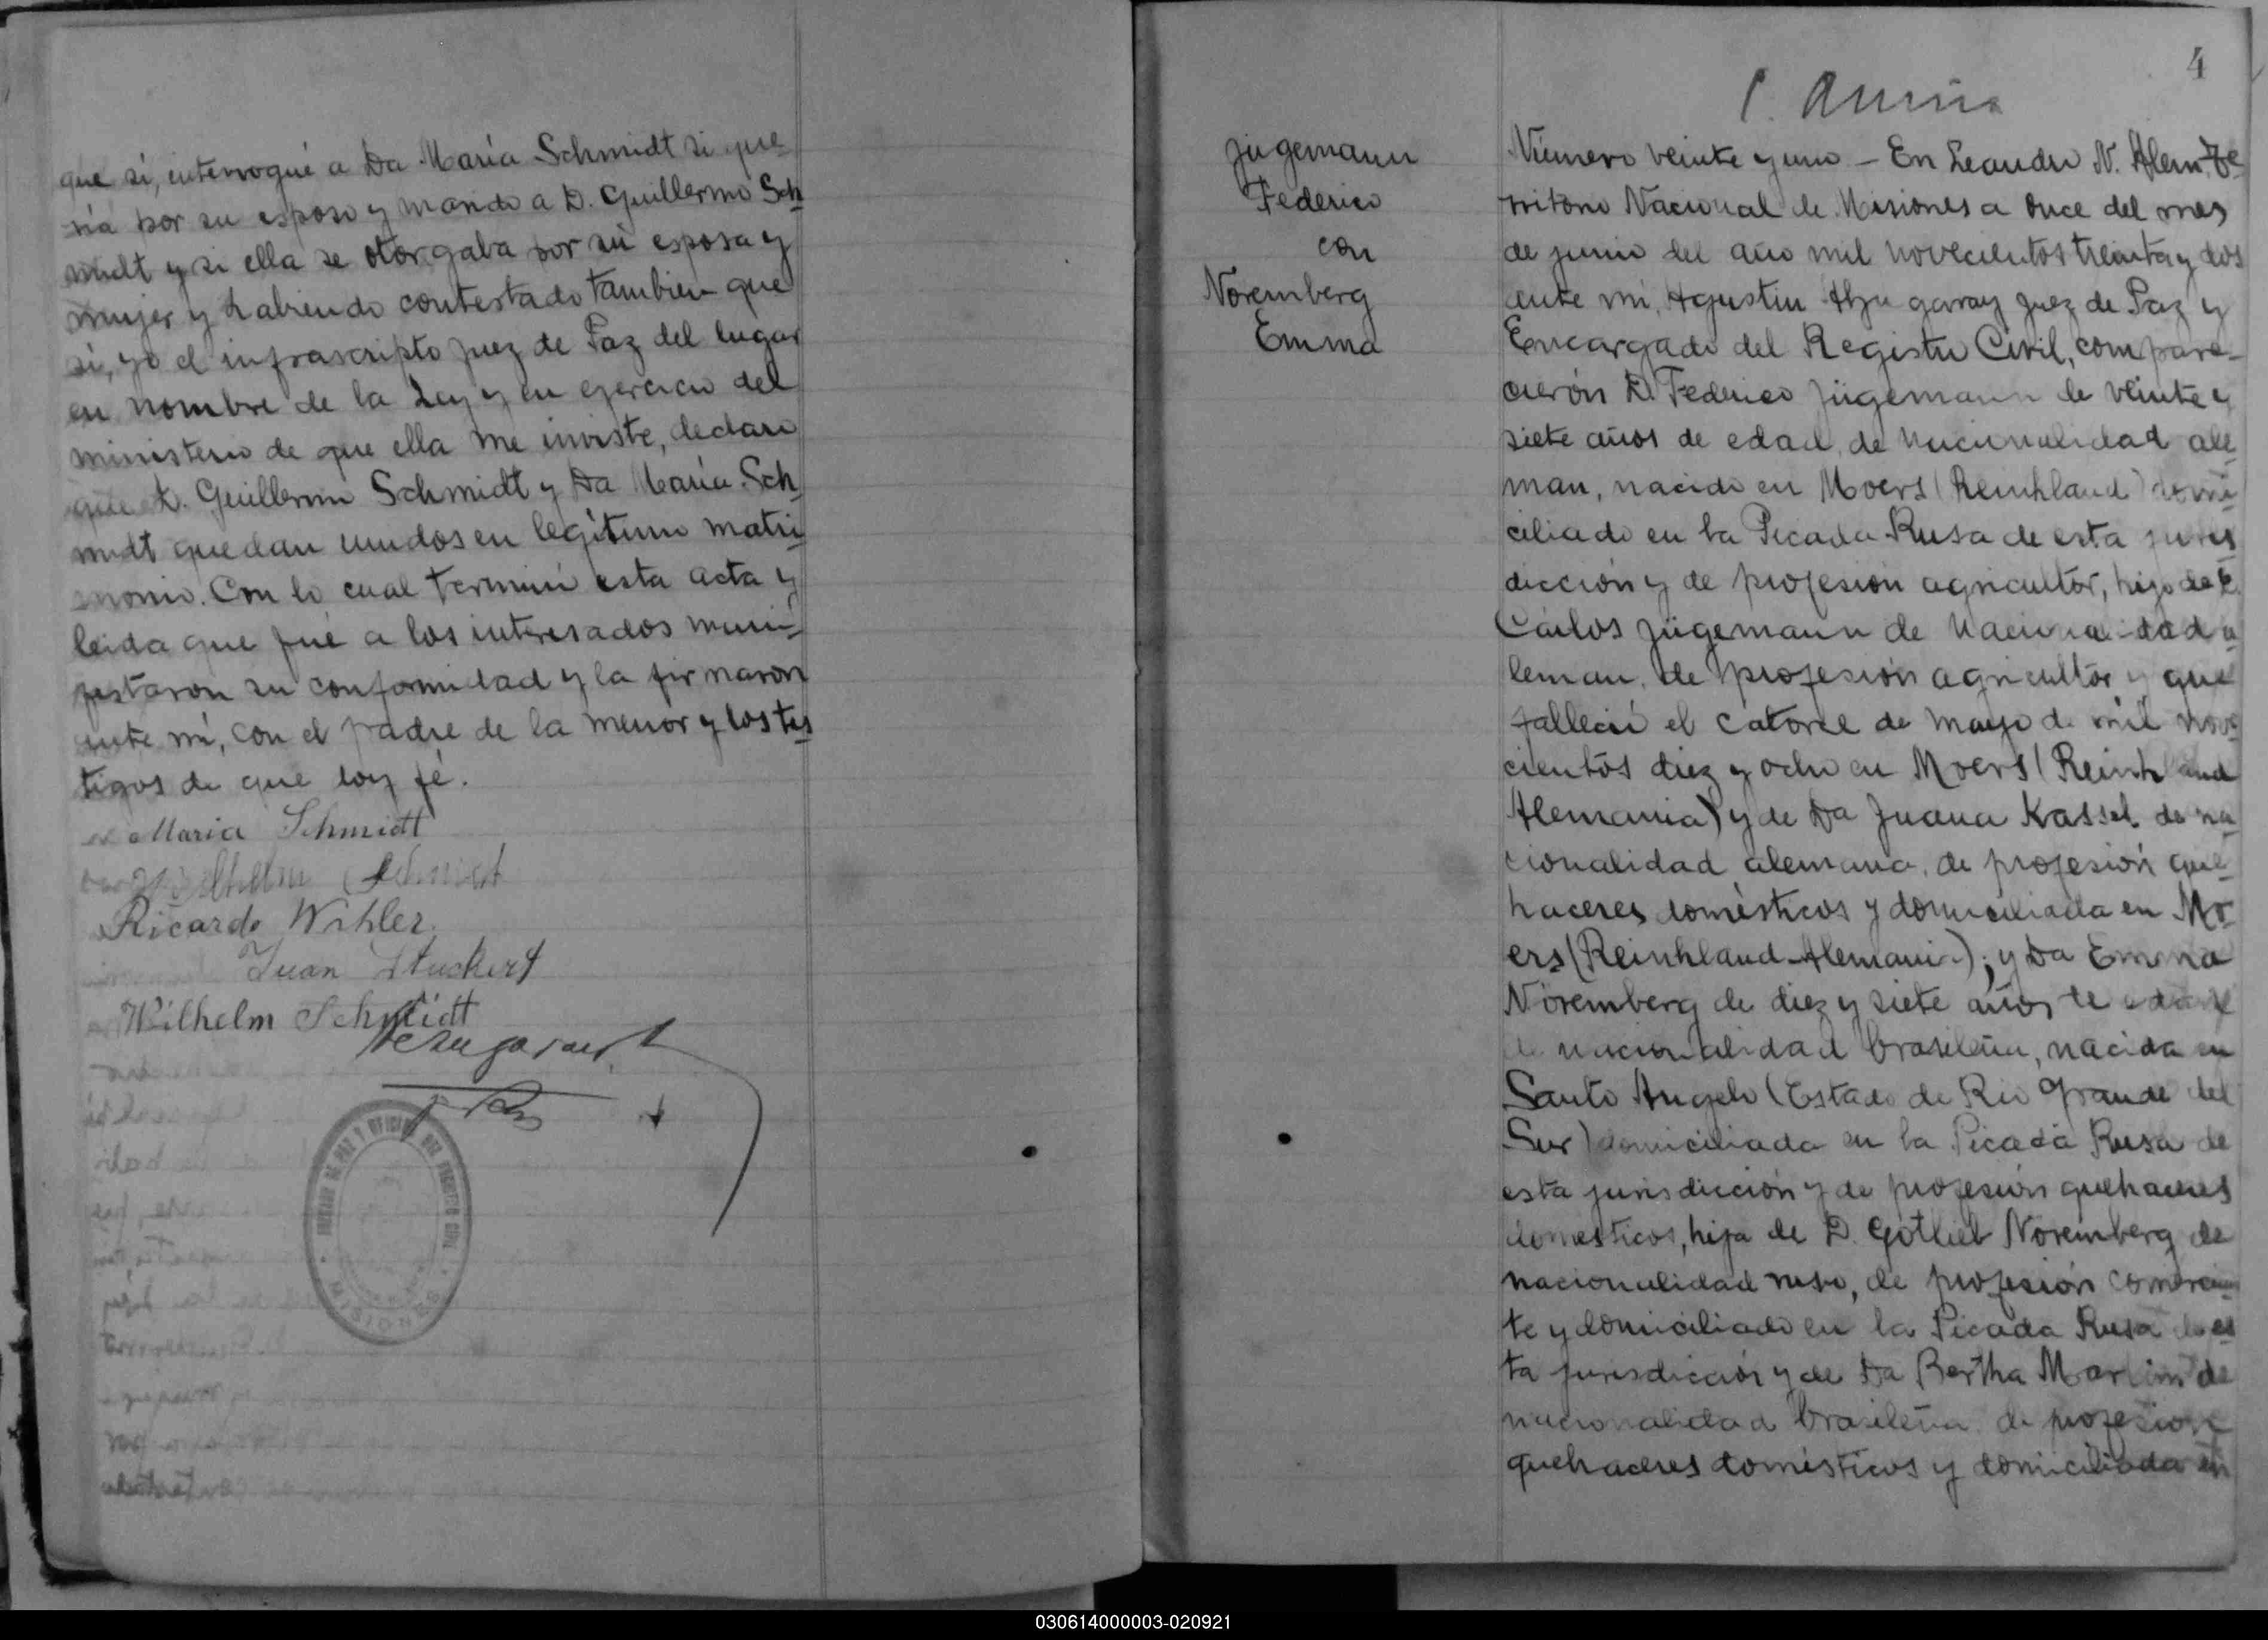 que si, interrogué a Da María Schmidt si que
ría por su esposo y marido a D. Guillermo Sch
midt y si ella se otorgaba por su esposa y
mujer y habiendo contestado tambien que
si, yo el infrascripto Juez de Paz del lugar
en nombre de la Ley y en ejercicio del
ministerio de que ella me inviste, declaro
que D. Guillermo Schmidt y Da María Sch
midt quedan unidos en legítimo matri
monio. Con lo cual terminó esta acta y
leida que fué a los interesados mani
festaron su conformidad y la firmaron
ante mí, con el padre de la menor y los tes
tigos de que doy fé.
Maria Schmidt
Wilhelm Schmidt
Ricardo Wihler
Juan Stuckert
Wilhelm Schmidt
JUZGADO DE PAZ Y OFICINA DEL REGISTRO CIVIL
MISIONES
4
Jügemann
Federico
con
Noremberg
Emma
Número veinte y uno - En Leandro N. Alem, Te
rritorio Nacional de Misiones a once del mes
de junio del año mil novecientos treinta y dos
ante mí, Agustin Azugaray Juez de Paz y
Encargado del Registro Civil, compare-
cierón D. Federico Jügemann de veinte y
siete años de edad, de nacionalidad ale
man, nacido en Moers (Reinhland) domi
ciliado en la Picada Rusa de esta juris
dicción y de profesión agricultor, hijo de D.
Cárlos Jügemann de nacionalidad a
leman, de profesión agricultor y que
falleció el catorce de mayo de mil nove
cientos diez y ocho en Moers (Reinhland
Alemania) y de Da Juana Kassel, de na
cionalidad alemana, de profesión que
haceres domésticos y domiciliada en Mo
ers (Reinhland-Alemania); y Da Emma
Noremberg de diez y siete años de edad
de nacionalidad brasileña, nacida en
Santo Angelo (Estado de Rio Grande del
Sur) domiciliada en la Picada Rusa de
esta jurisdicción y de profesión quehaceres
domésticos, hija de D. Gotlieb Noremberg de
nacionalidad ruso, de profesión comercian
te y domiciliado en la Picada Rusa de es
ta jurisdicción y de Da Bertha Martim de
nacionalidad brasileña de profesión
quehaceres domésticos y domiciliada en
030614000003-020921